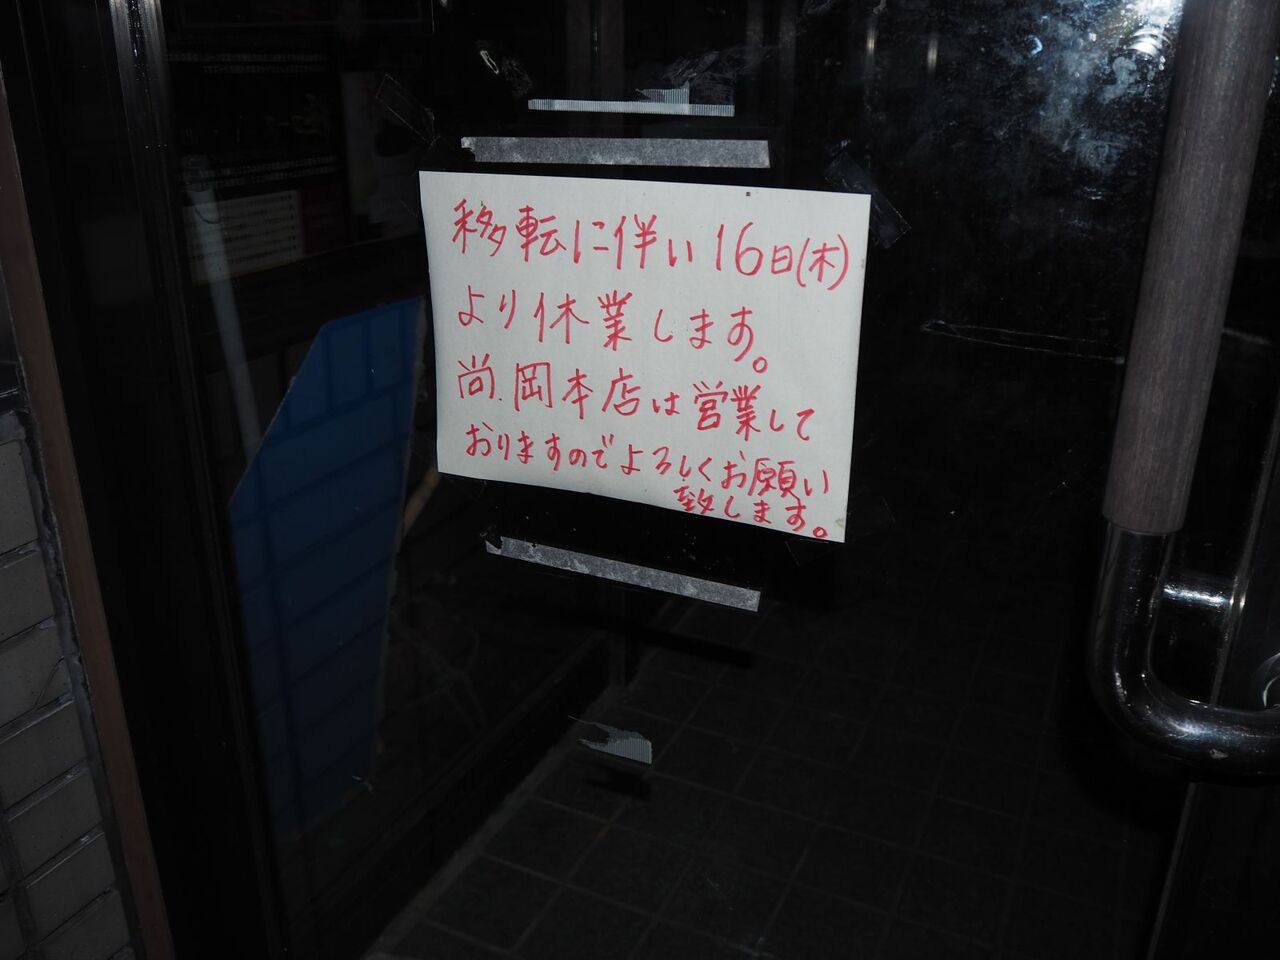 移転に伴い16日(木)
より休業します。
尚、岡本店は営業して
おりますのでよろしくお願い
致します。